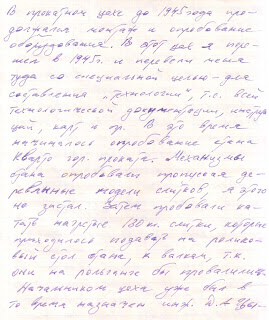 В прокатном цехе до 1945 года про-
должался монтаж и опробование
оборудования. В этот цех я пере-
шел в 1945г. и перевели меня
туда со специальной целью - для
составления "технологии", т.е. всей
технологической документации, инструк-
ций, карт и пр. В это время
начиналось опробование стана
кварто гор. проката. Механизмы
стана опробовали пропуская де-
ревянные модели слитков, я этого
не застал. Затем пробовали ка-
тать нагретые 130 кг. слитки, которые
приходилось подавать на ролико-
вый стол стана, к валкам, т.к.
они на рольганге бы провалились.
Начальником цеха уже был в
то время назначен инж. Д.А.